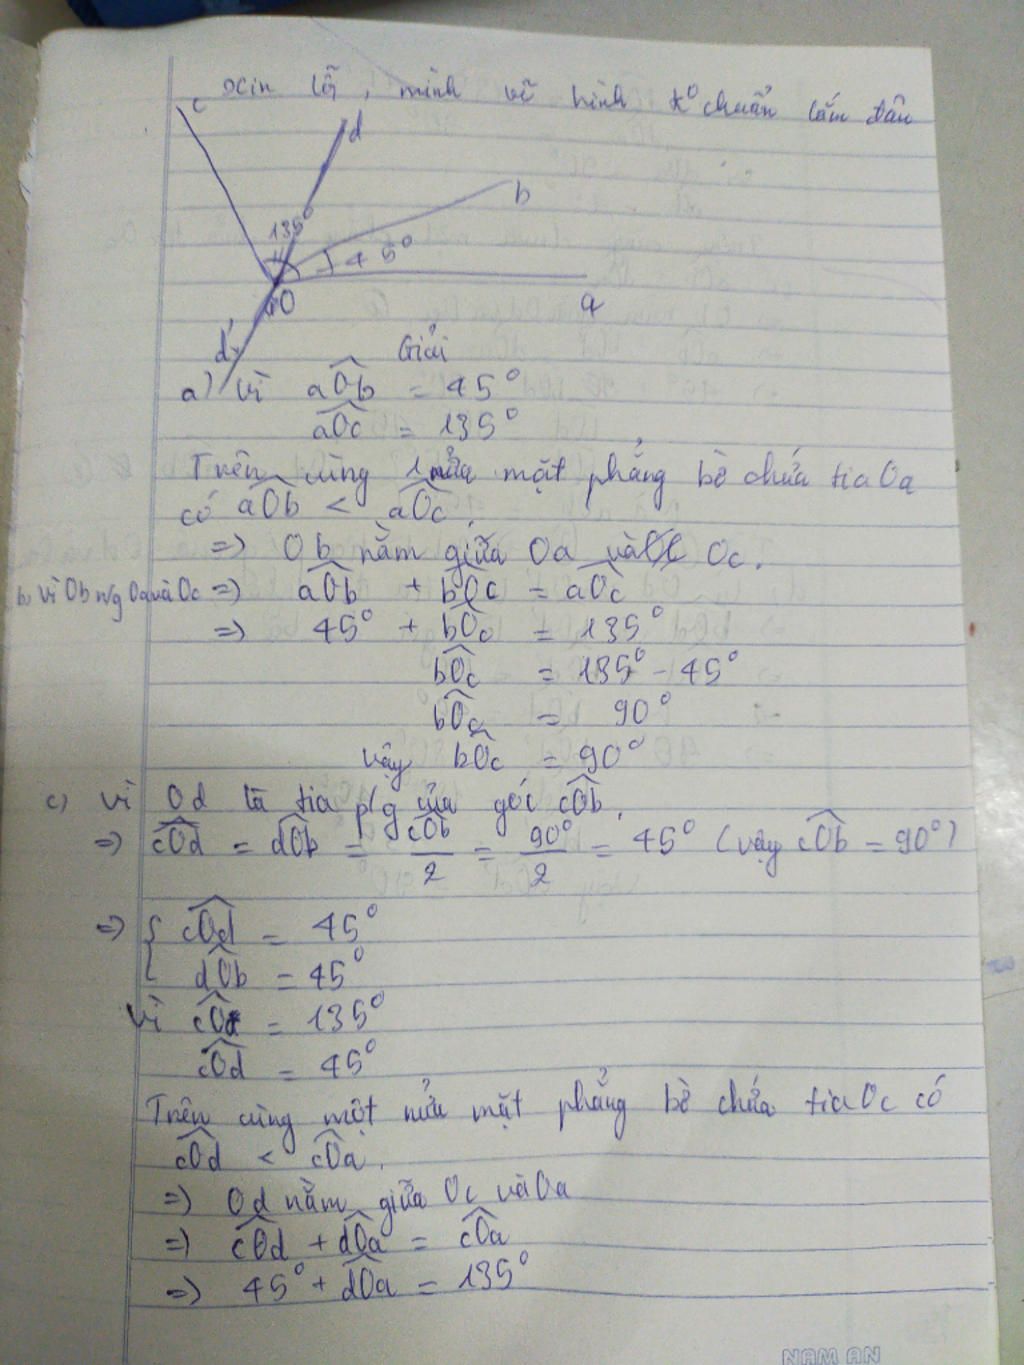 xin lỗi, mình vẽ hình k° chuẩn lắm đâu
c
d
b
135°
45°
O
a
d'
Giải
a) Vì aOb = 45°
aOc = 135°
Trên cùng 1 nửa mặt phẳng bờ chứa tia Oa
có aOb < aOc.
=> Ob nằm giữa Oa và Oc.
b) Vì Ob n/g Oa và Oc => aOb + bOc = aOc
=> 45° + bOc = 135°
bOc = 135° - 45°
bOc = 90°
vậy bOc = 90°
c) Vì Od là tia p/g của góc cOb.
=> cOd = dOb = cOb/2 = 90°/2 = 45° (vậy cOb = 90°)
=> { cOd = 45°
dOb = 45°
Vì cOa = 135°
cOd = 45°
Trên cùng một nửa mặt phẳng bờ chứa tia Oc có
cOd < cOa.
=> Od nằm giữa Oc và Oa
=> cOd + dOa = cOa
=> 45° + dOa = 135°
NAM AN